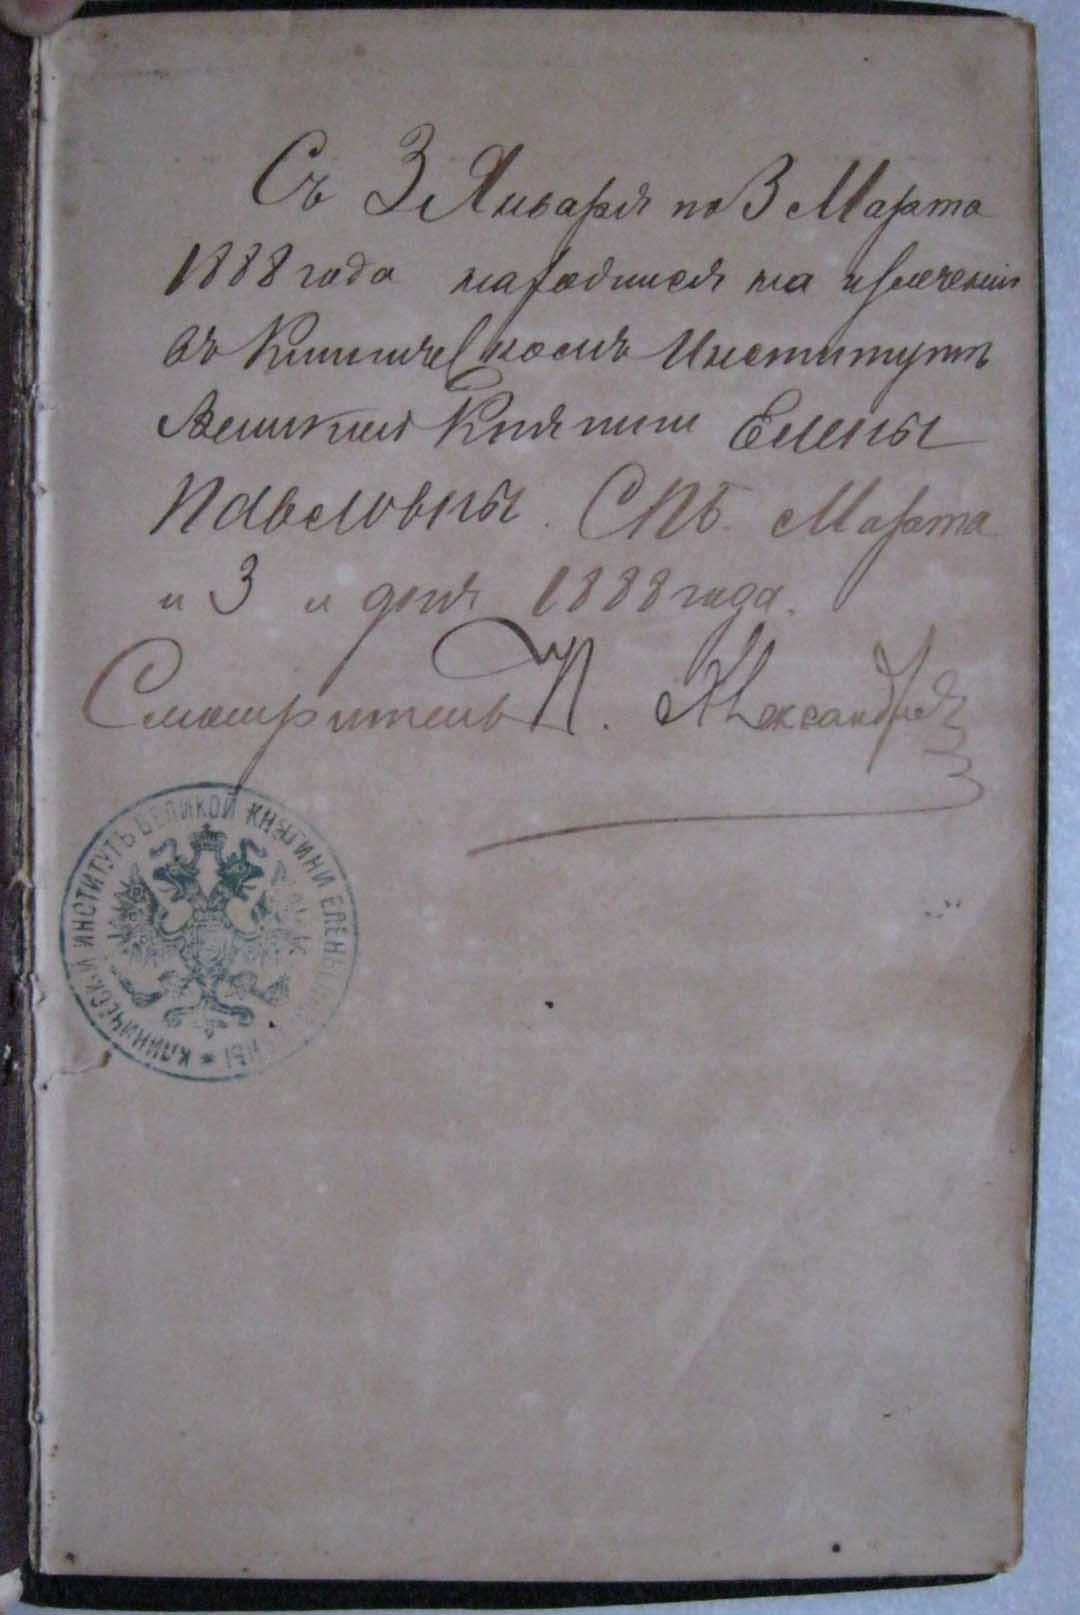 Съ 3 Января по 3 Марта
1888 года находился на излеченіи
въ Клиническомъ Институтѣ
Великой Княгини Елены
Павловны. СПБ. Марта
"3" дня 1888 года.
Смотритель П. Александровъ
КЛИНИЧЕСКІЙ ИНСТИТУТЪ ВЕЛИКОЙ КНЯГИНИ ЕЛЕНЫ